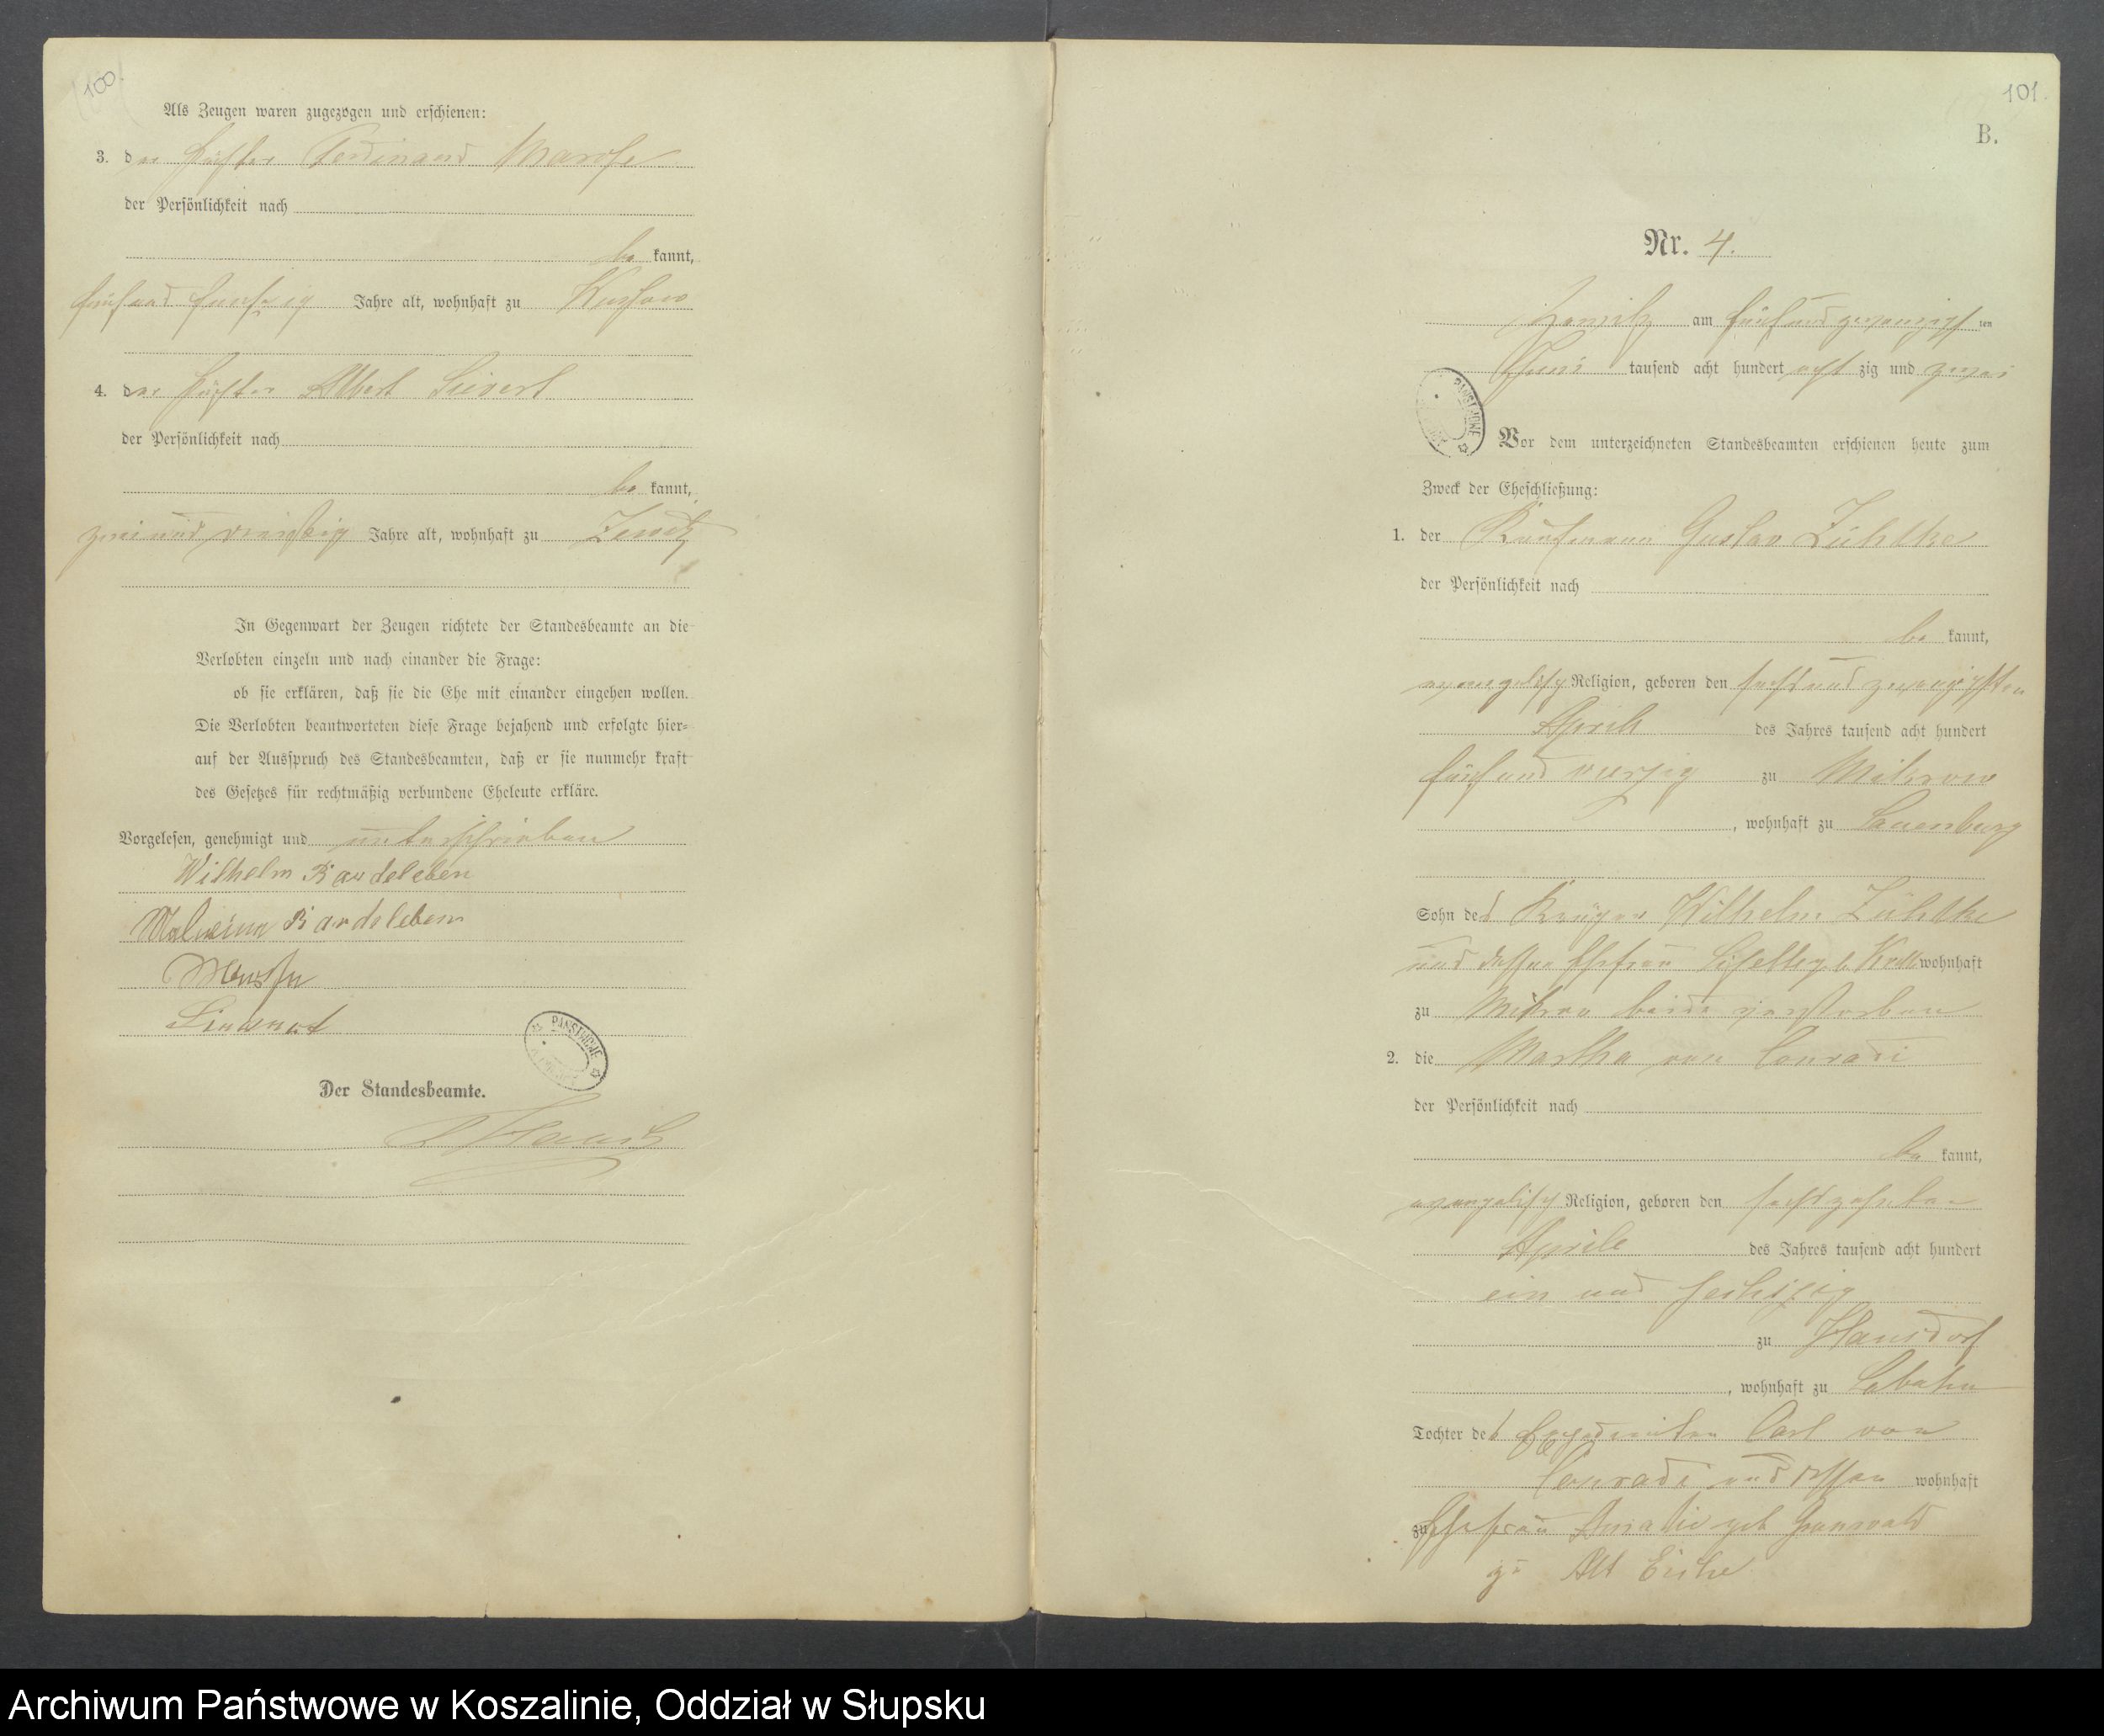 100
Als Zeugen waren zugezogen und erschienen:
3. der Pächter Ferdinand
der Persönlichkeit nach
be kannt,
fünfund fünfzig Jahre alt, wohnhaft zu
4. der Pächter Albert Sievert
der Persönlichkeit nach
be kannt,
zweiund Jahre alt, wohnhaft zu Zewitz
In Gegenwart der Zeugen richtete der Standesbeamte an die
Verlobten einzeln und nach einander die Frage:
ob sie erklären, daß sie die Ehe mit einander eingehen wollen.
Die Verlobten beantworteten diese Frage bejahend und erfolgte hier-
auf der Ausspruch des Standesbeamten, daß er sie nunmehr kraft
des Gesetzes für rechtmäßig verbundene Eheleute erkläre.
Vorgelesen, genehmigt und unterschrieben
Wilhelm Bardeleben
Bardeleben
PANSTWOWE
Der Standesbeamte.
101.
B.
Nr. 4.
Zewitz am fünfundzwanzigsten
Juni tausend acht hundert acht zig und zwei
PANSTWOWE
Vor dem unterzeichneten Standesbeamten erschienen heute zum
Zweck der Eheschließung:
1. der Kaufmann Gustav Zühlke
der Persönlichkeit nach
be kannt,
evangelisch Religion, geboren den sechsundzwanzigsten
April des Jahres tausend acht hundert
fünf und vierzig zu Mikrow
, wohnhaft zu Lauenburg
Sohn des Krüger Wilhelm Zühlke
und dessen Ehefrau wohnhaft
zu Mikrow beide verstorben
2. die Martha von Conradi
der Persönlichkeit nach
be kannt,
evangelisch Religion, geboren den sechszehnten
April des Jahres tausend acht hundert
ein und sechszig
zu Hansdorf
, wohnhaft zu Labehn
Tochter des Carl von
Conradi und dessen wohnhaft
zu Ehefrau Amalie geb Grunwald
zu Alt Eiche
Archiwum Państwowe w Koszalinie, Oddział w Słupsku